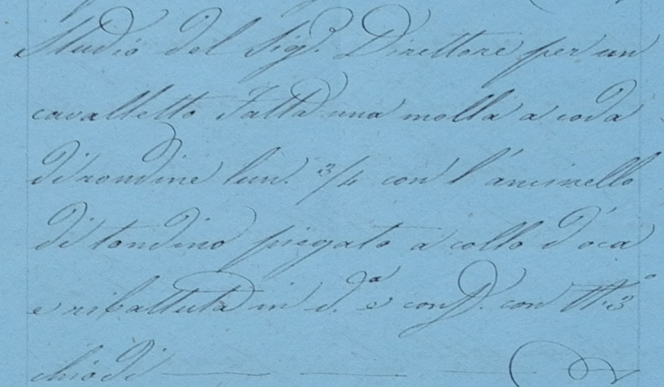 Studio del Sig.r Direttore per un
cavalletto. Fatta una molla a coda
di rondine lun. 3/4 con l'ancinello
di tondino piegato a collo d'oca
e ribattuta in d.a e cong.a con N. 3
chiodi